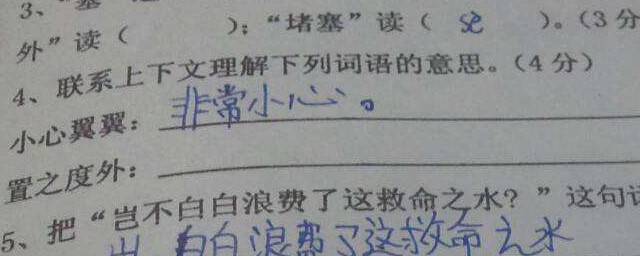 3、“塞
外”读（ ）；“堵塞”读（ sè ）。（3分
4、联系上下文理解下列词语的意思。（4分）
小心翼翼：非常小心。
置之度外：
5、把“岂不白白浪费了这救命之水？”这句
白白浪费了这救命之水